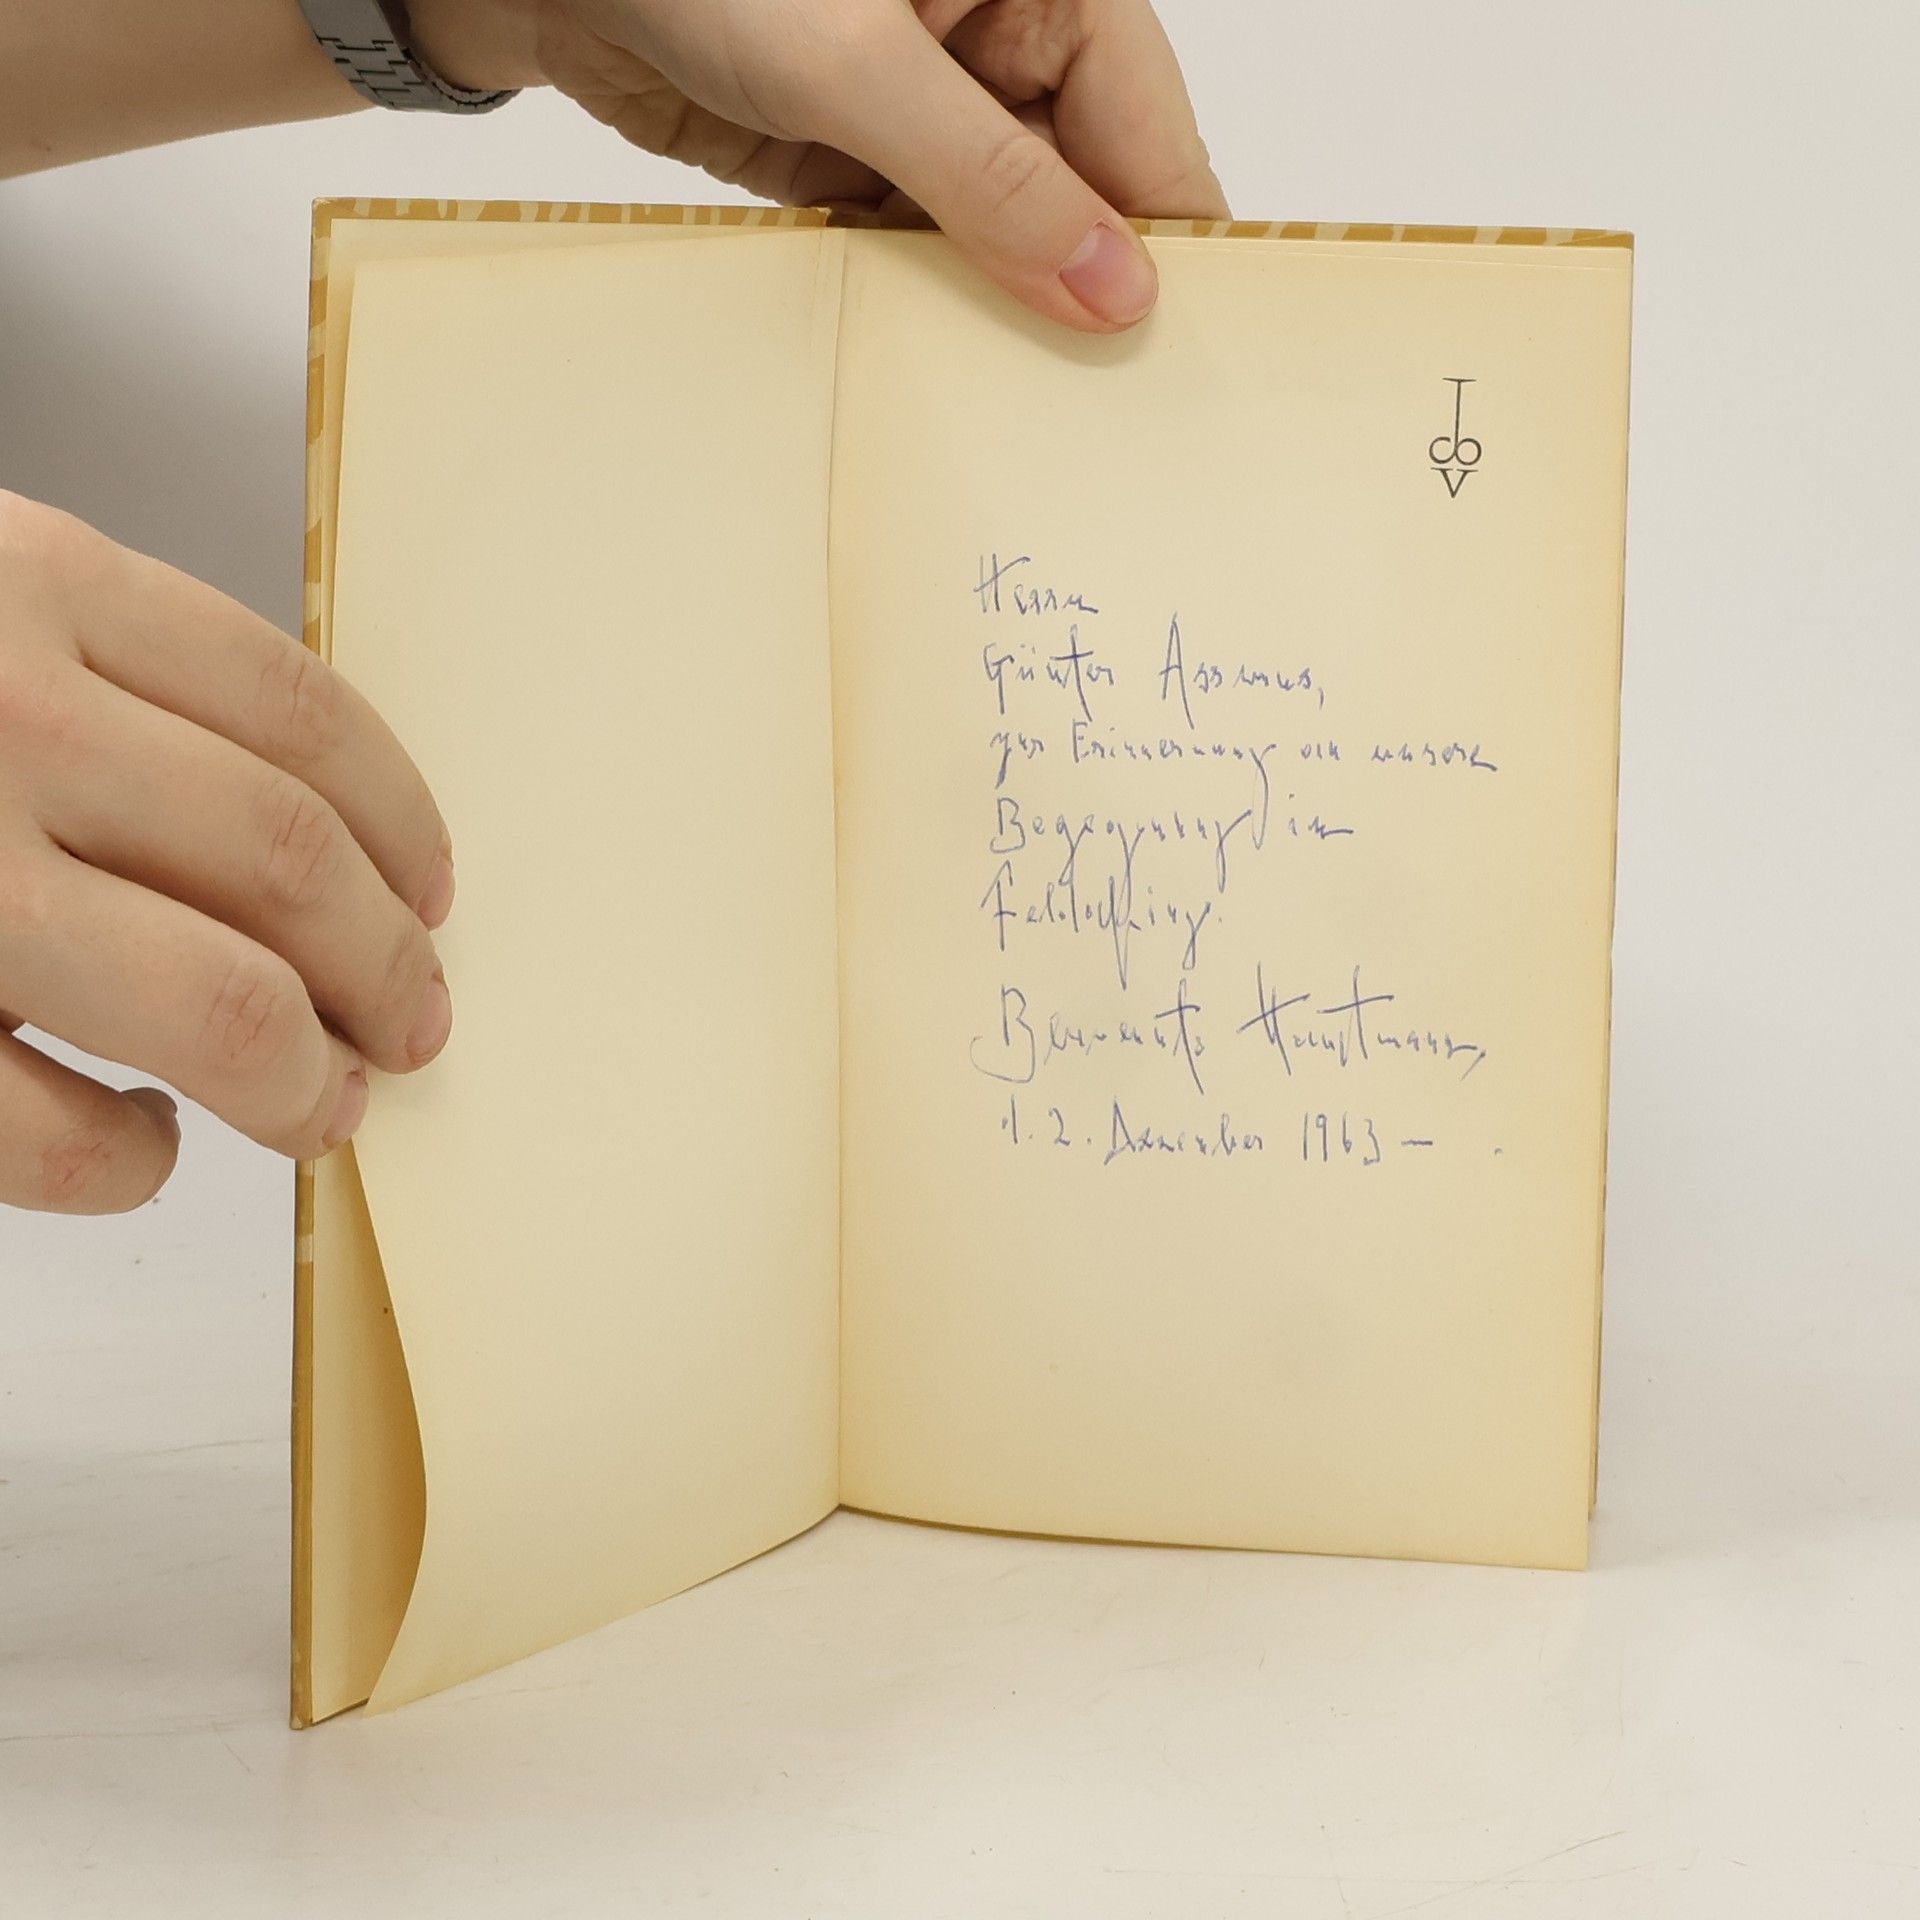 I
cb
V
Herrn
Günter Assmus,
zur Erinnerung an unsere
Begegnung in
Feldafing.
Benvenuto Hauptmann,
1. 2. Dezember 1963 —